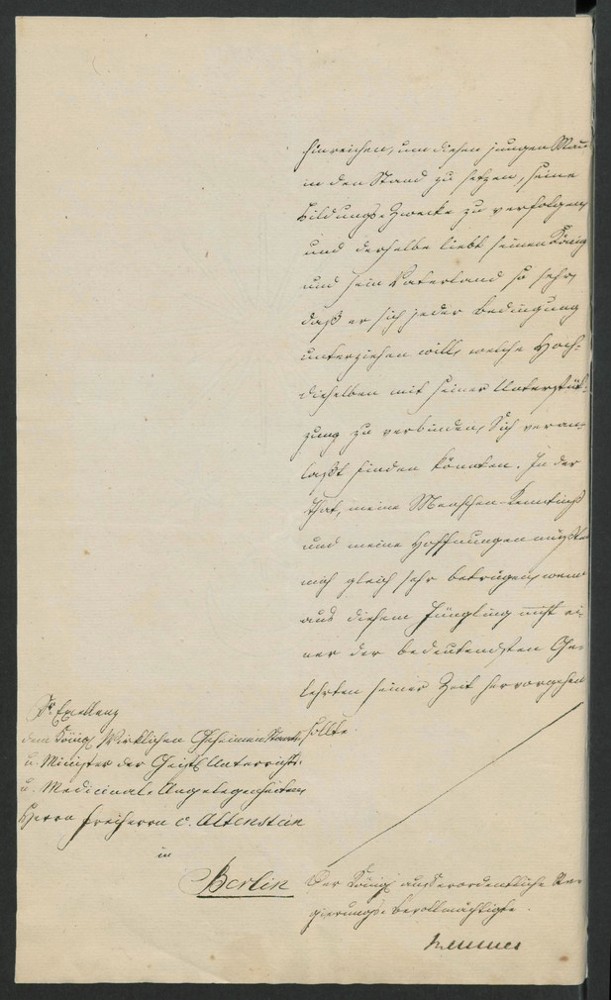 hinreichen, um diesen jungen Mann
in den Stand zu setzen, seine
Bildungs-Zwecke zu verfolgen,
und derselbe liebt seinen König
und sein Vaterland so sehr,
daß er sich jeder Bedingung
unterziehen will, welche Hoch-
dieselben mit seiner Unterstüt-
zung zu verbinden, Sich veran-
laßt finden könnten. In der
That, meine Menschen-Kenntniß
und meine Hoffnungen müßten
mich gleich sehr betrügen, wenn
aus diesem Jüngling nicht ei-
ner der bedeutendsten Ge-
lehrten seiner Zeit hervorgehen
sollte.
Der Königl außerordentliche Re-
gierungs-Bevollmächtigte.
Sr Excellenz
dem Königl Wirklichen Geheimen Staats
u Minister der Geistl Unterrichts-
u. Medicinal-Angelegenheiten
Herrn Freiherrn v. Altenstein
in
Berlin